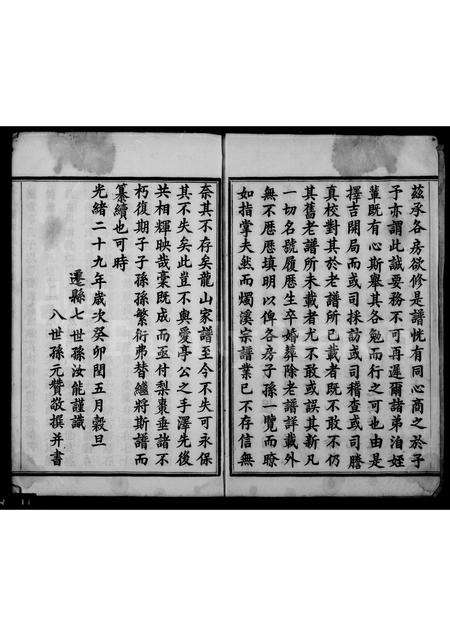 茲承各房欲修是譜恍有同心商之於子
子亦謂此誠要務不可再遲爾諸弟洎姪
輩既有心斯舉其各勉而行之可也由是
擇吉開局而或司採訪或司稽查或司謄
真校對其於老譜所已載者既不敢不仍
其舊老譜所未載者尤不敢或誤其新凡
一切名號履歷生卒婚葬除老譜詳載外
無不歷歷填明以俾各房子孫一覽而瞭
如指掌夫然而燭溪宗譜業已不存信無
奈其不存矣龍山家譜至今不失可永保
其不失矣此豈不與愛亭公之手澤先後
共相輝映哉稾既成而亟付梨棗垂諸不
朽復期子子孫孫繁衍弗替繼將斯譜而
纂續也可時
光緒二十九年歲次癸卯閏五月穀旦
遷縣七世孫汝能謹識
八世孫元贊敬撰并書